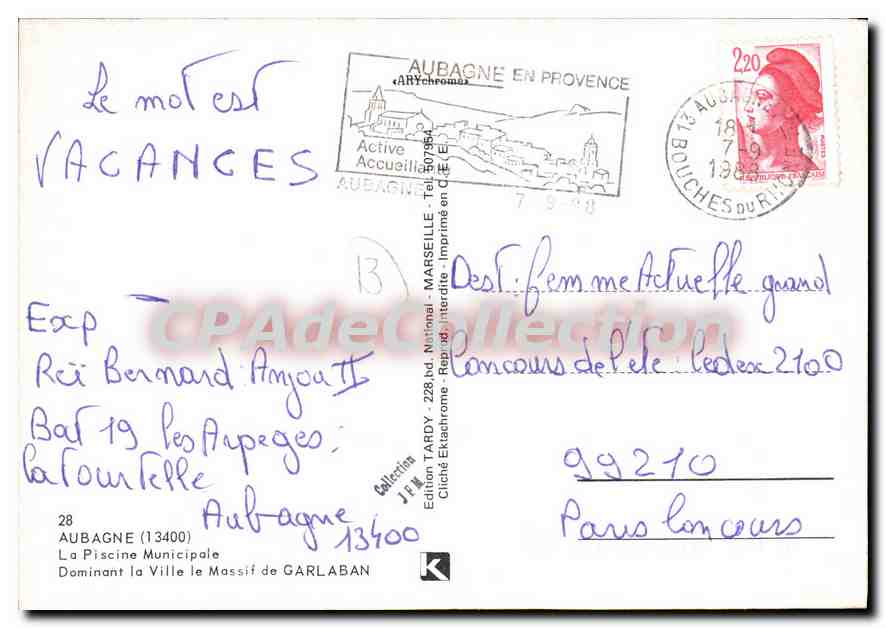 Le mot est
VACANCES
AUBAGNE EN PROVENCE
«ARYchrome»
Active
Accueillante
AUBAGNE
7-9-88
13 AUBAGNE
18
7-9
1988
BOUCHES DU RHONE
2,20
REPUBLIQUE FRANCAISE
13
Exp
Réi Bernard : Anjou II
Bat 19 les Arpeges :
la Tourtelle
Aubagne
13400
Dest : femme Actuelle grand
Concours de l'été : Cedex 2100
99210
Paris Concours
CPAdeCollection
Collection
J F M
Edition TARDY - 228, bd. National - MARSEILLE - Tel. 507954
Cliché Ektachrome - Reprod. Interdite - Imprimé en C.E.E.
28
AUBAGNE (13400)
La Piscine Municipale
Dominant la Ville le Massif de GARLABAN
K